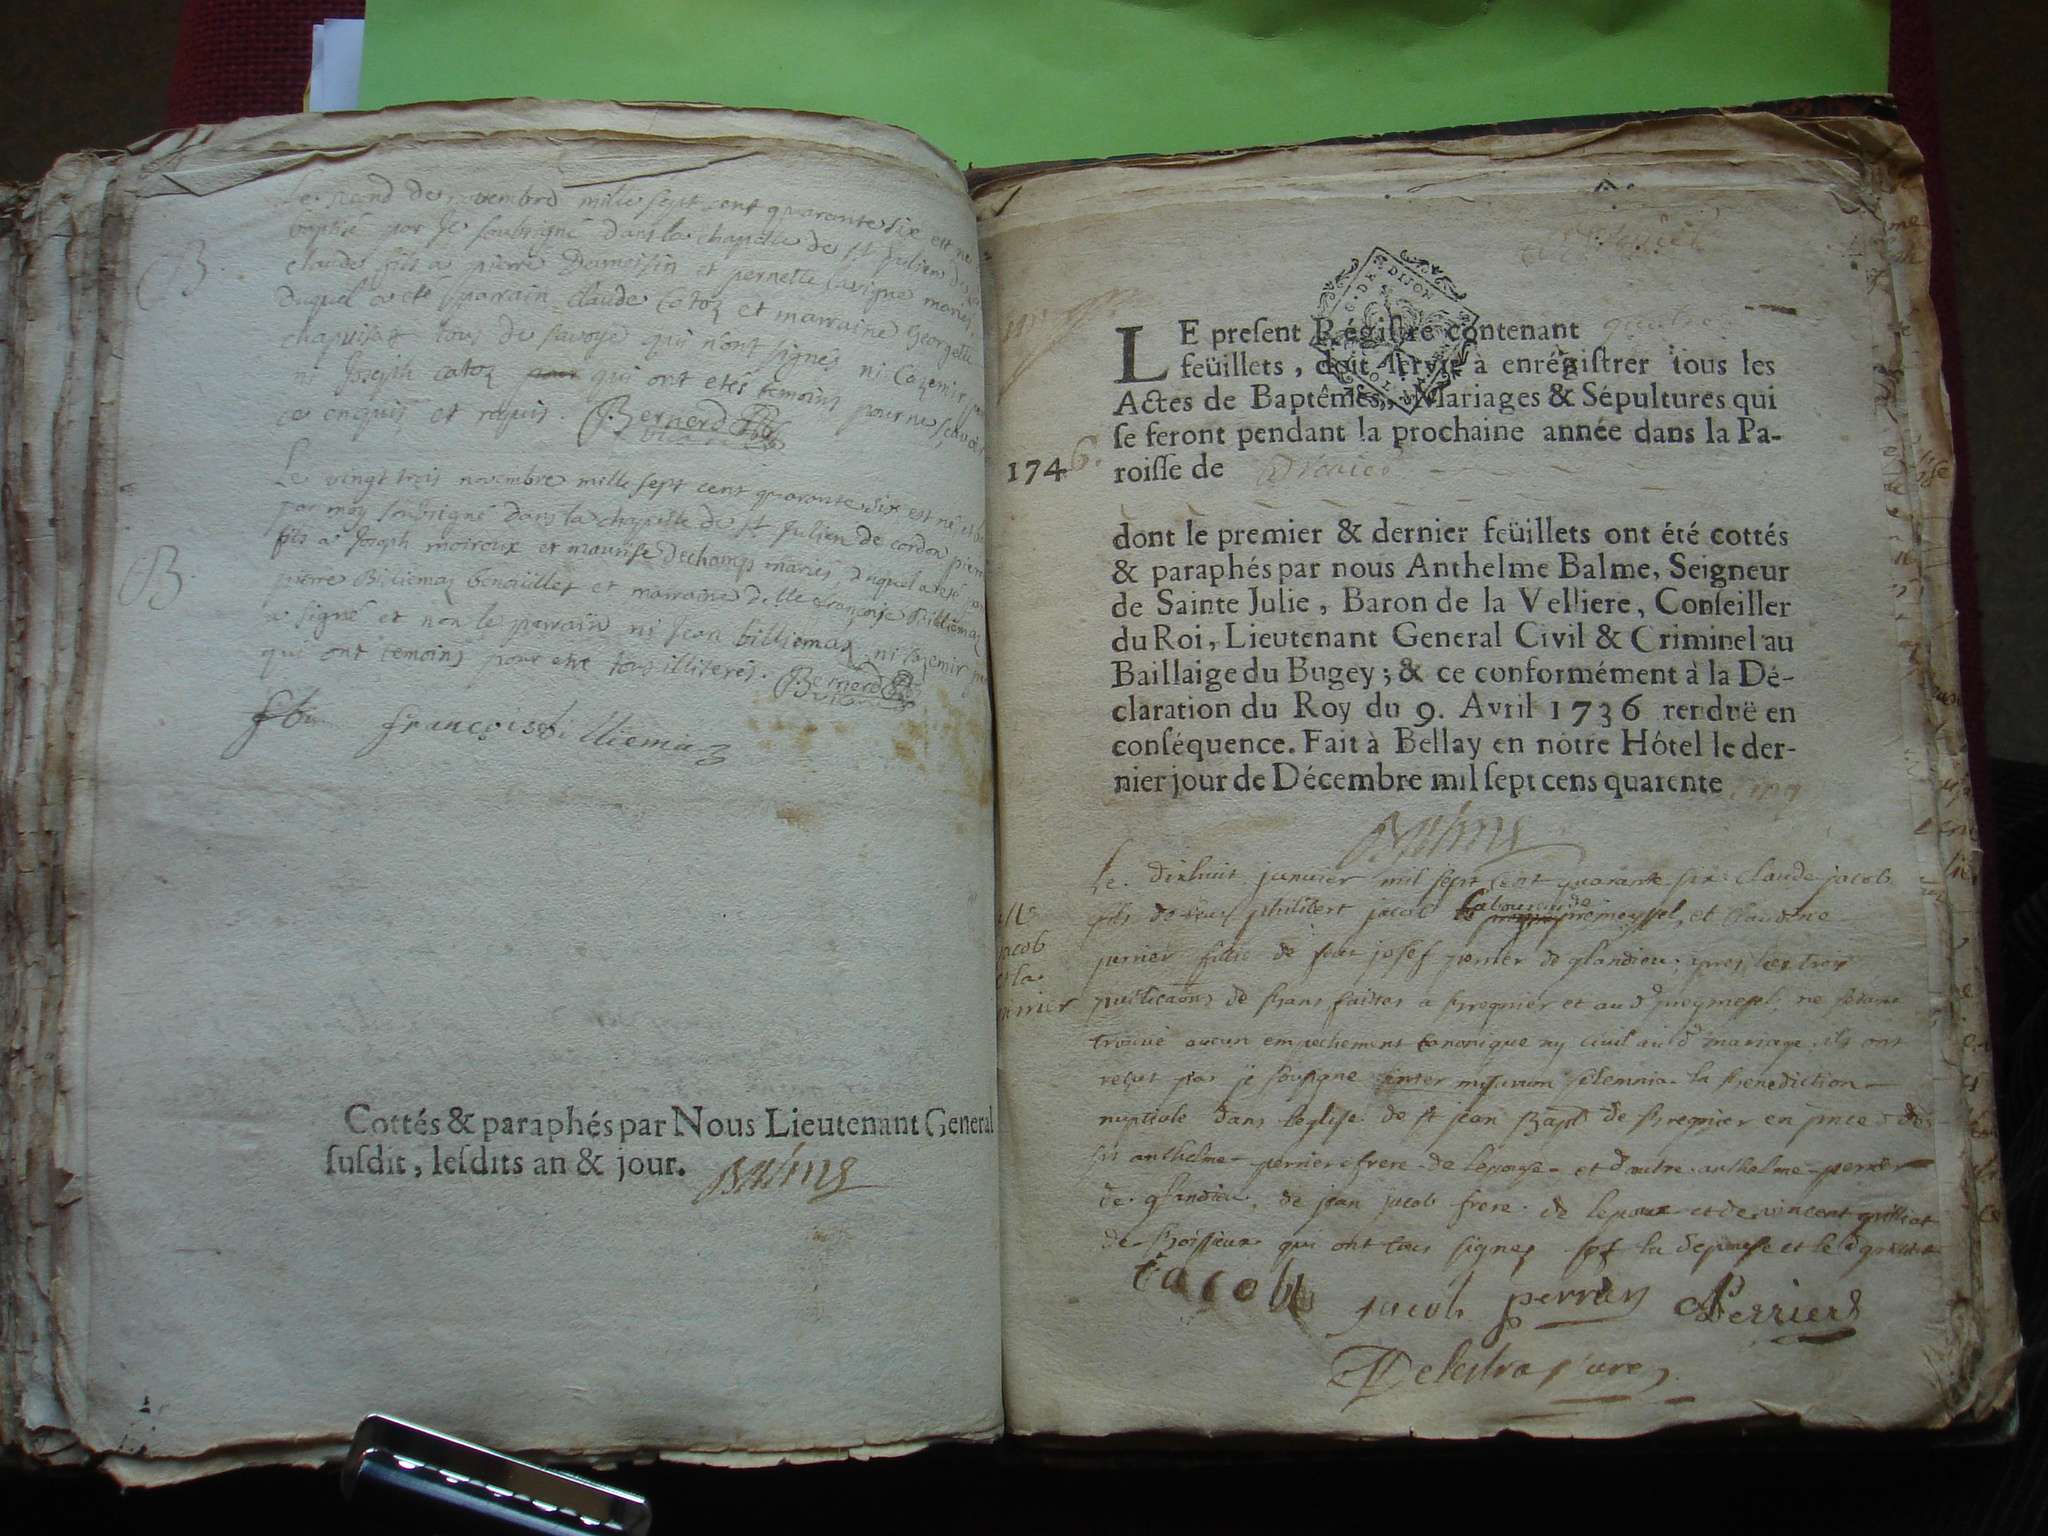 Le second de novembre mille sept cent quarante six est né
baptisé par Je soubsigné dans la chapelle de st Julien de
claude fils a pierre Dameisin et pernette lavigne mariés
Duquel a eté parrain claude catoz et marraine Georgette
chapuisat tous de savoye qui n'ont signés ni Cazemir
ni Joseph catoz qui ont etés temoins pour ne scavoir
ce enquis et requis. Bernerd
B.
Le vingt trois novembre mille sept cent quarante six est né et
par moy soubsigné dans la chapelle de st Julien de cordon pierre
fils a Joseph moiroux et maurise Dechamps mariés duquel a eté
pierre Billiemaz et marraine D.lle françoise Billiemaz
a signé et non le parrain ni Jean billiemaz ni cazemir
qui ont temoins pour etre tous illiterés. Bernerd
B.
françoise billiemaz
Cottés & paraphés par Nous Lieutenant General
susdit, lesdits an & jour. Balme
G. DE DIJON
LE present Régistre contenant quatre
feüillets, doit servir à enrégistrer tous les
Actes de Baptêmes, Mariages & Sépultures qui
se feront pendant la prochaine année dans la Pa-
1746. roisse de
dont le premier & dernier feüillets ont été cottés
& paraphés par nous Anthelme Balme, Seigneur
de Sainte Julie, Baron de la Velliere, Conseiller
du Roi, Lieutenant General Civil & Criminel au
Baillaige du Bugey; & ce conformément à la Dé-
claration du Roy du 9. Avril 1736 renduë en
conséquence. Fait à Bellay en nôtre Hôtel le der-
nier jour de Décembre mil sept cens quarente cinq
Balme
Le dixhuit janvier mil sept cent quarante six claude jacob
fils de feu philibert jacob laboureur de premeyssel, et claudine
perrier fille de feu josef perrier de glandieu; apres les trois
publicaons de bans faittes a bregnier et aud premeyssel, ne s'etant
trouvé aucun empechement canonique ny civil aud mariage ils ont
reçus par je soussigne inter missarum solemnia la benediction
nuptiale dans leglise de st jean bapt de bregnier en pnce des
srs anthelme perrier frere de lepouse et d'autre anthelme perrier
de glandieu, de jean jacob frere de lepoux et de vincent grilliet
de boissieux qui ont tous signes sof la d epouse et le d grilliet
jacob
jacob
perrier
A Perrier
Delestra curé